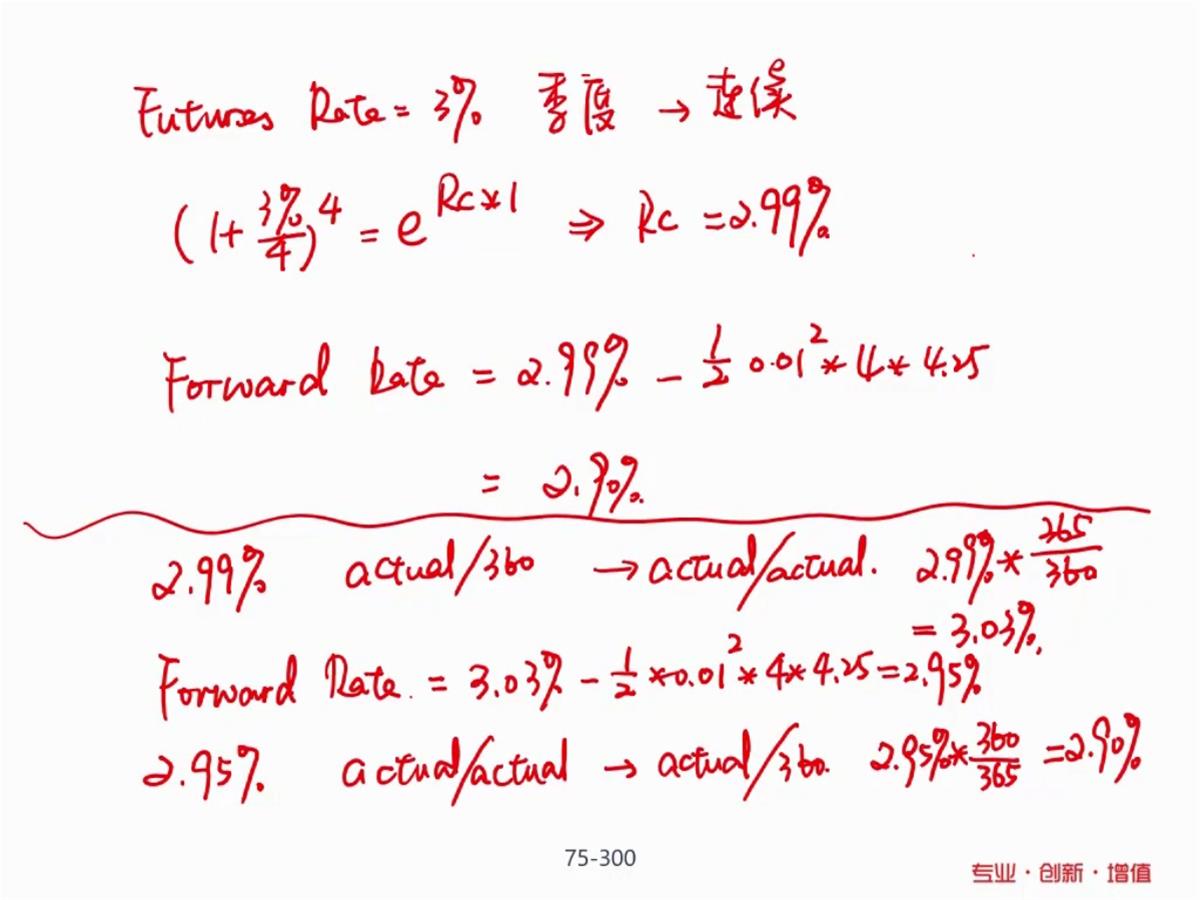 Futures Rate = 3% 季度 → 连续
(1+ 3%/4)^4 = e^Rc*1 ⇒ Rc = 2.99%
Forward Rate = 2.99% - 1/2 0.01^2 * 4 * 4.25
= 2.90%.
2.99% actual/360 → actual/actual. 2.99% * 365/360
= 3.03%.
Forward Rate. = 3.03% - 1/2 * 0.01^2 * 4 * 4.25 = 2.95%
2.95% actual/actual → actual/360. 2.95% * 360/365 = 2.90%
75-300
专业·创新·增值